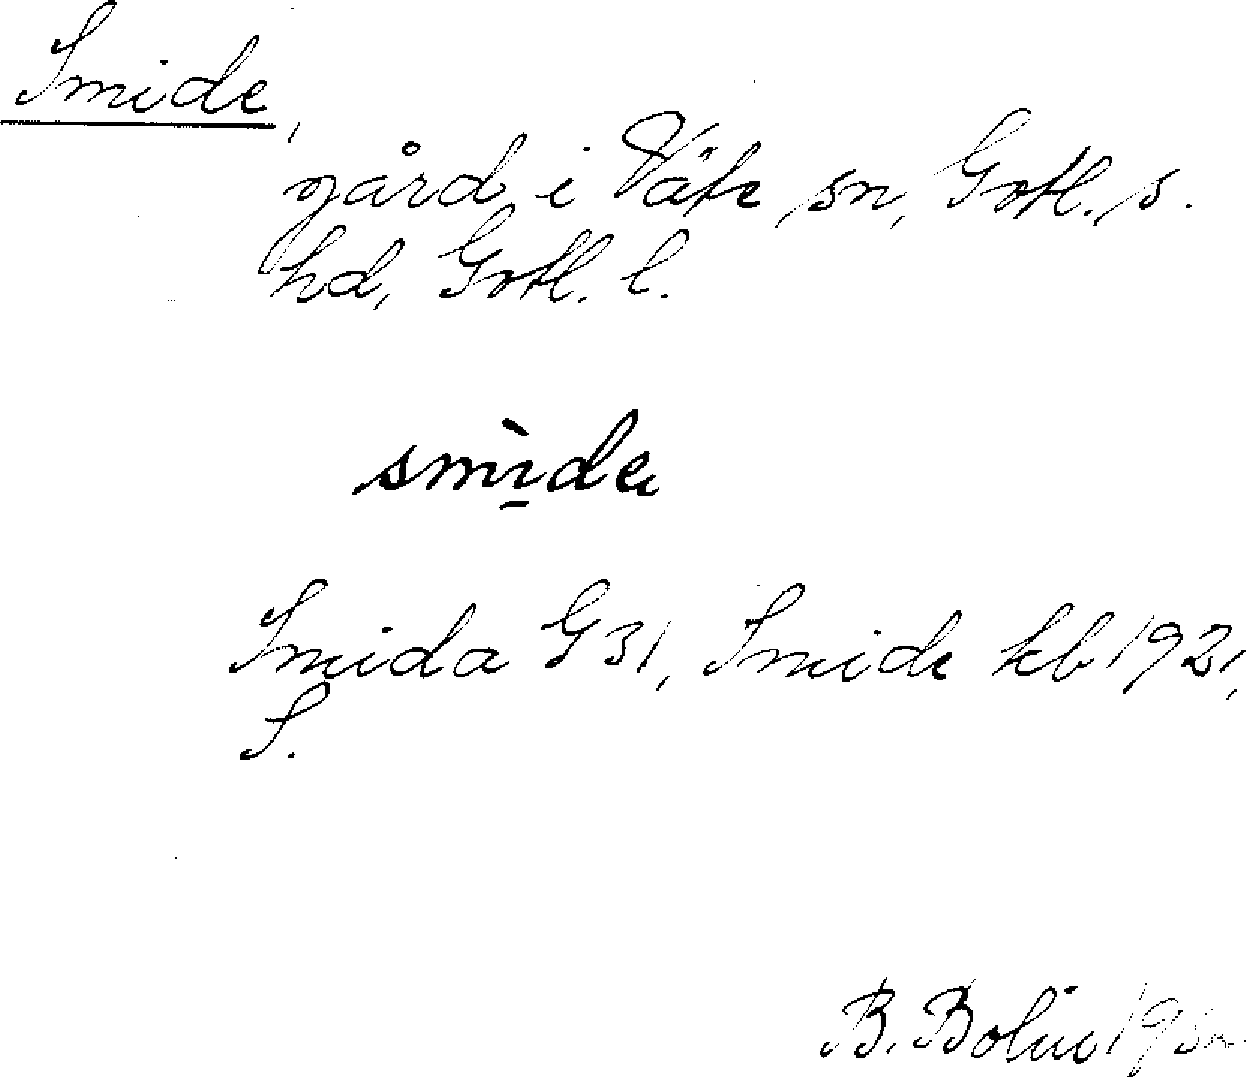 Smide,
gård i Väte sn, Gotl. s.
hd, Gotl. l.
smìde
Smida G 31, Smide kb 1921,
S.
B. Bolin